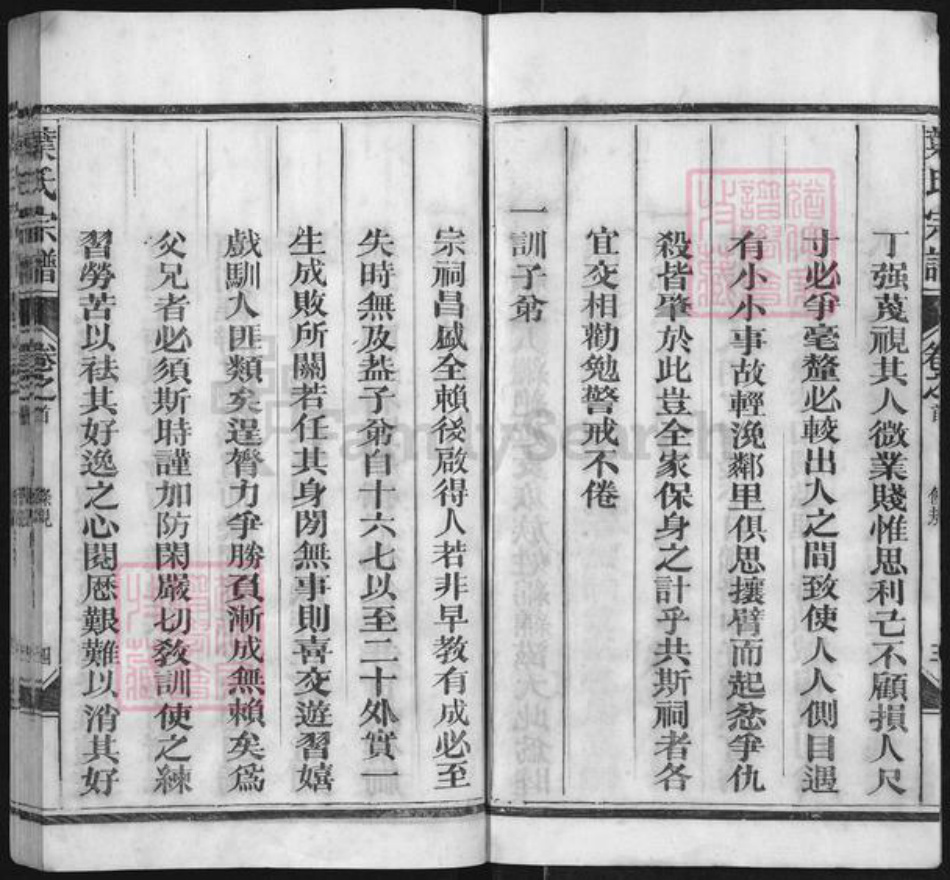 丁强蔑視其人微業賤惟思利己不顧損人尺
寸必爭毫釐必較出入之間致使人人側目遇
有小小事故輕浼鄰里俱思攘臂而起忿爭仇
殺皆肇於此豈全家保身之計乎共斯祠者各
宜交相勸勉警戒不倦
一訓子弟
宗祠昌盛全賴後啟得人若非早教有成必至
失時無及葢子弟自十六七以至二十外實一
生成敗所關若任其身閒無事則喜交遊習嬉
戲馴入匪類矣逞膂力爭勝負漸成無賴矣為
父兄者必須斯時謹加防閑嚴切教訓使之練
習勞苦以袪其好逸之心閱歷艱難以消其好
葉氏宗譜
卷之首
條規
四
FamilySearch